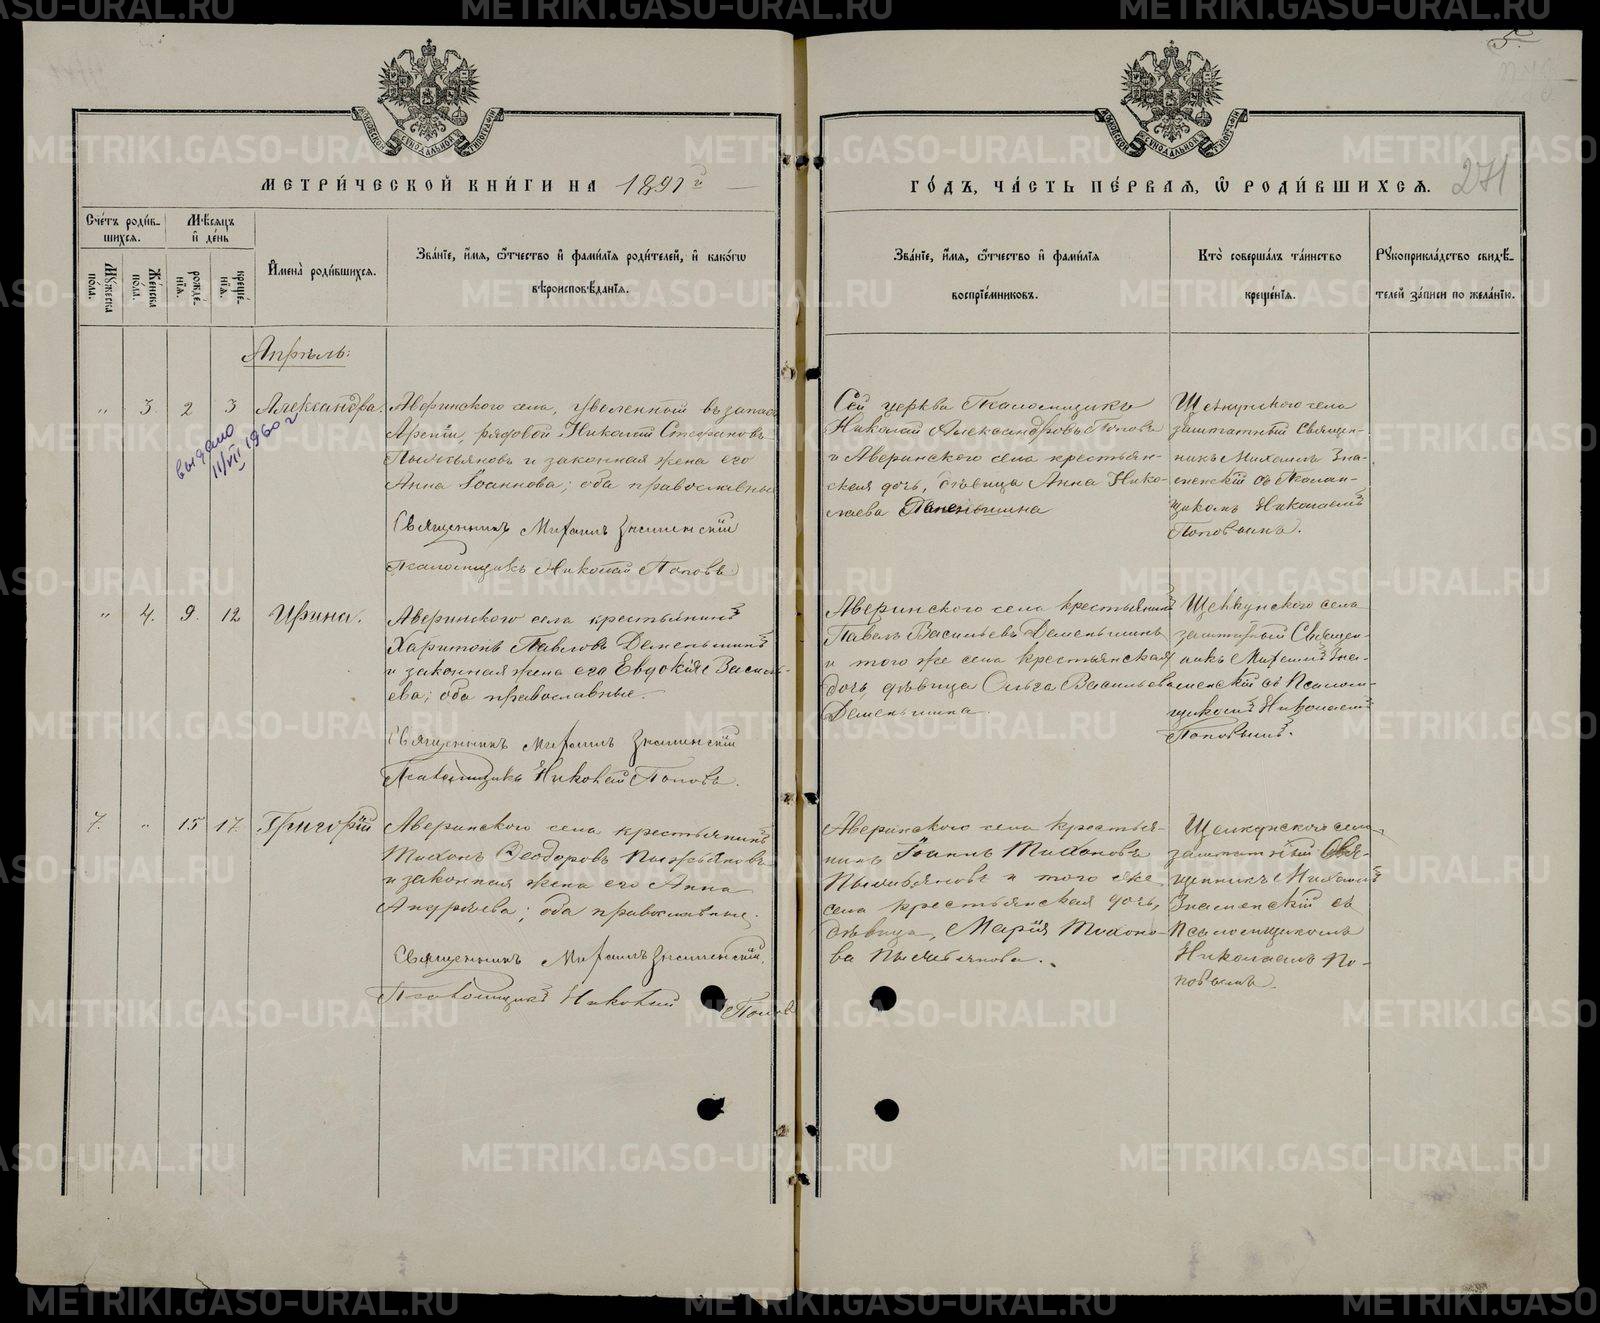 5.
МЕТРИ́ЧЕСКОЙ КНИ́ГИ НА 1891 й
ГО́ДЪ, ЧА́СТЬ ПЕ́РВАЯ, Ѡ РОДИ́ВШИХСЯ. 271
Сче́тъ роди́в-
шихся.
Му́жеска по́ла.
Же́нска по́ла.
Мѣ́сяцъ
и де́нь
рожде́нія.
креще́нія.
Имена̀ роди́вшихся.
Зва́нїе, и́мя, ѻ́тчество и фами́лїя роди́телей, и како́гѡ
вѣроисповѣ́данїя.
Зва́нїе, и́мя, ѻ́тчество и фами́лїя
воспрїе́мниковъ.
Кто̀ соверша́лъ та́инство
креще́нїя.
Рукоприкла́дство свидѣ́-
телей за́писи по жела́нїю.
Апрѣль:
" 3. 2 3 Александра.
выдано
11/VII 1960 г
Аверинскаго села, уволенный въ запасъ
Арміи рядовой Николай Стефановъ
и законная жена его
Анна Іоаннова; оба православные
Священникъ Михаилъ Знаменскій
Псаломщикъ Николай Поповъ.
Сей церкви Псаломщикъ
Николай Александровъ Поповъ
и Аверинскаго села крестьян-
ская дочь, дѣвица Анна Нико-
лаева
Щелкунскаго села
заштатный Священ-
никъ Михаилъ Зна-
менскій съ Псалом-
щикомъ Николаемъ
Поповымъ.
" 4. 9. 12 Ирина.
Аверинскаго села крестьянинъ
Харитонъ Павловъ Деменьшинъ
и законная жена его Евдокія Василь-
ева; оба православные.
Священникъ Михаилъ Знаменскій
Псаломщикъ Николай Поповъ.
Аверинскаго села крестьянинъ
Павелъ Васильевъ Деменьшинъ
и того же села крестьянская
дочь, дѣвица Ольга Васильева
Деменьшина.
Щелкунскаго села
заштатный Священ-
никъ Михаилъ Зна-
менскій съ Псалом-
щикомъ Николаемъ
Поповымъ.
7. " 15 17. Григорій
Аверинскаго села крестьянинъ
Тихонъ Ѳеодоровъ Пылжьяновъ
и законная жена его Анна
Андреева; оба православные.
Священникъ Михаилъ Знаменскій.
Псаломщикъ Николай Поповъ
Аверинскаго села крестья-
нинъ Іоаннъ Тихоновъ
и того же
села крестьянская дочь,
дѣвица, Марія Тихоно-
ва
Щелкунскаго села
заштатный Свя-
щенникъ Михаилъ
Знаменскій съ
Псаломщикомъ
Николаемъ По-
повымъ.
METRIKI.GASO-URAL.RU